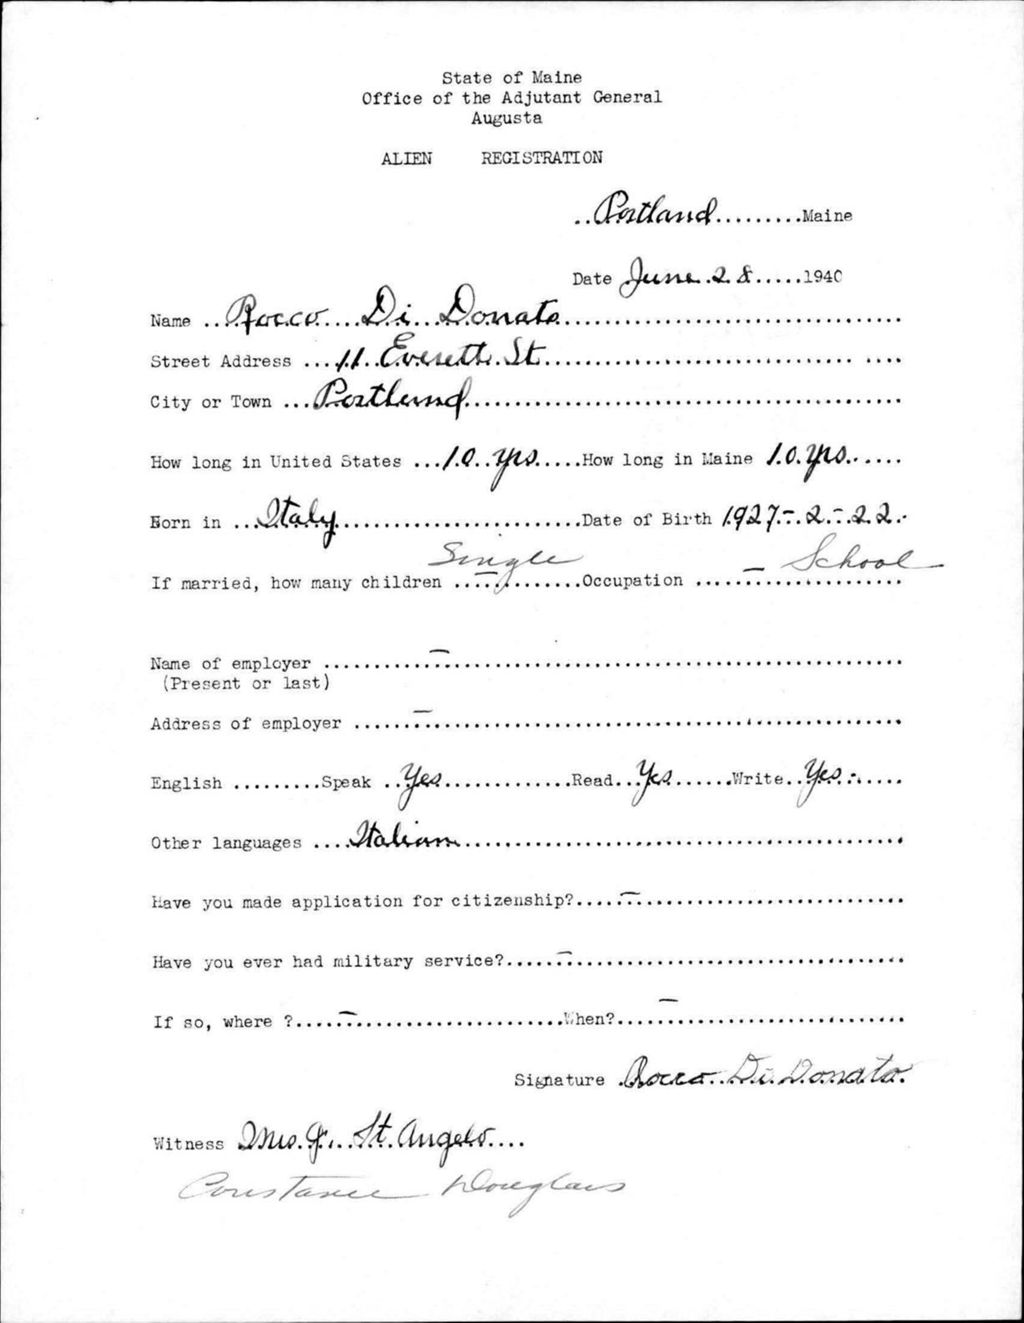 State of Maine
Office of the Adjutant General
Augusta
ALIEN REGISTRATION
..Portland.........Maine
Date June 28.....1940
Name ..Rocco....Di...Donato..................................
Street Address ...11..Everett.St............................... ....
City or Town ...Portland...........................................
How long in United States ...10..yrs.....How long in Maine 10.yrs......
Born in ...Italy........................Date of Birth 1927.-.2.-.22.
Single – School
If married, how many children ....–........Occupation .....................
Name of employer ...........–..............................................
(Present or last)
Address of employer ......–................................................
English .........Speak ..Yes.............Read...Yes......Write..Yes......
Other languages ....Italian.............................................
Have you made application for citizenship?....–...........................
Have you ever had military service?.....–.................................
If so, where ?....–.....................When?....–.......................
Signature .Rocco..Di.Donato.
Witness Mrs.J...St.Angelo....
Constance Douglass